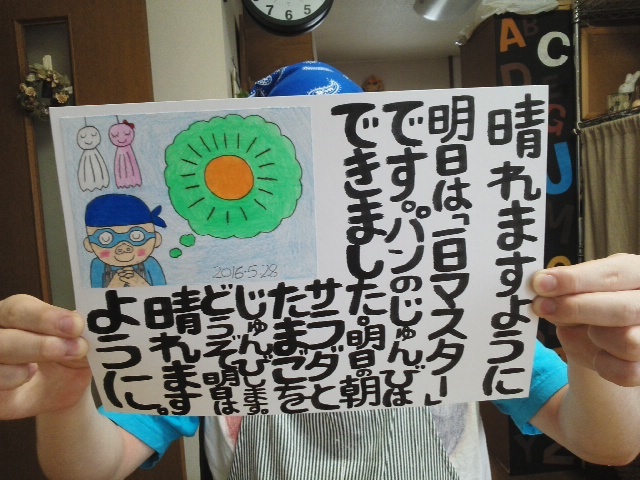 晴れますように
明日は「一日マスター」
です。パンのじゅんびは
できました。明日の朝
サラダと
たまごを
じゅんびします。
どうぞ明日は
晴れます
ように。
2016.5.28
7 6 5
A
C